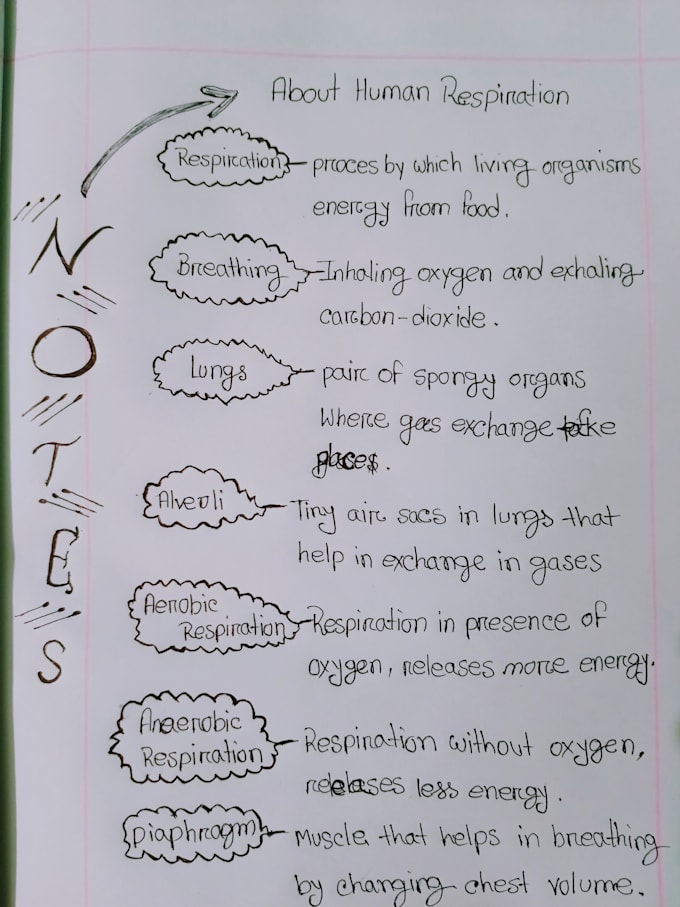 About Human Respiration
NOTES
Respiration – proces by which living organisms
energy from food.
Breathing – Inhaling oxygen and exhaling
carbon-dioxide.
Lungs – pair of spongy organs
where gas exchange take
places.
Alveoli – Tiny air sacs in lungs that
help in exchange in gases
Aerobic
Respiration – Respiration in presence of
oxygen, releases more energy.
Anaerobic
Respiration – Respiration without oxygen,
releases less energy.
Diaphragm – Muscle that helps in breathing
by changing chest volume.